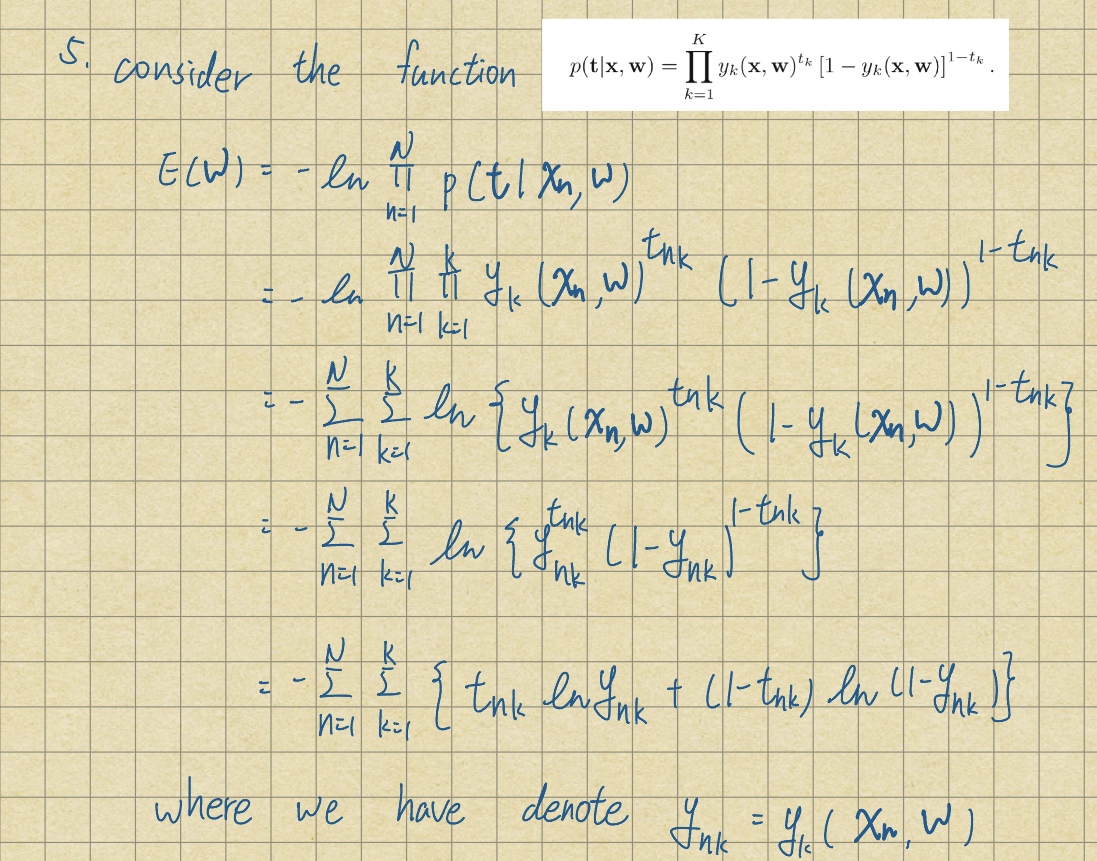 5. consider the function $p(\mathbf{t}|\mathbf{x}, \mathbf{w}) = \prod_{k=1}^{K} y_k(\mathbf{x}, \mathbf{w})^{t_k} \left[1 - y_k(\mathbf{x}, \mathbf{w})\right]^{1-t_k}.$
$E(w) = -\ln \prod_{n=1}^{N} p(t | x_n, w)$
$= -\ln \prod_{n=1}^{N} \prod_{k=1}^{K} y_k(x_n, w)^{t_{nk}} (1 - y_k(x_n, w))^{1-t_{nk}}$
$= -\sum_{n=1}^{N} \sum_{k=1}^{K} \ln \{ y_k(x_n, w)^{t_{nk}} (1 - y_k(x_n, w))^{1-t_{nk}} \}$
$= -\sum_{n=1}^{N} \sum_{k=1}^{K} \ln \{ y_{nk}^{t_{nk}} (1 - y_{nk})^{1-t_{nk}} \}$
$= -\sum_{n=1}^{N} \sum_{k=1}^{K} \{ t_{nk} \ln y_{nk} + (1 - t_{nk}) \ln (1 - y_{nk}) \}$
where we have denote $y_{nk} = y_k(x_n, w)$